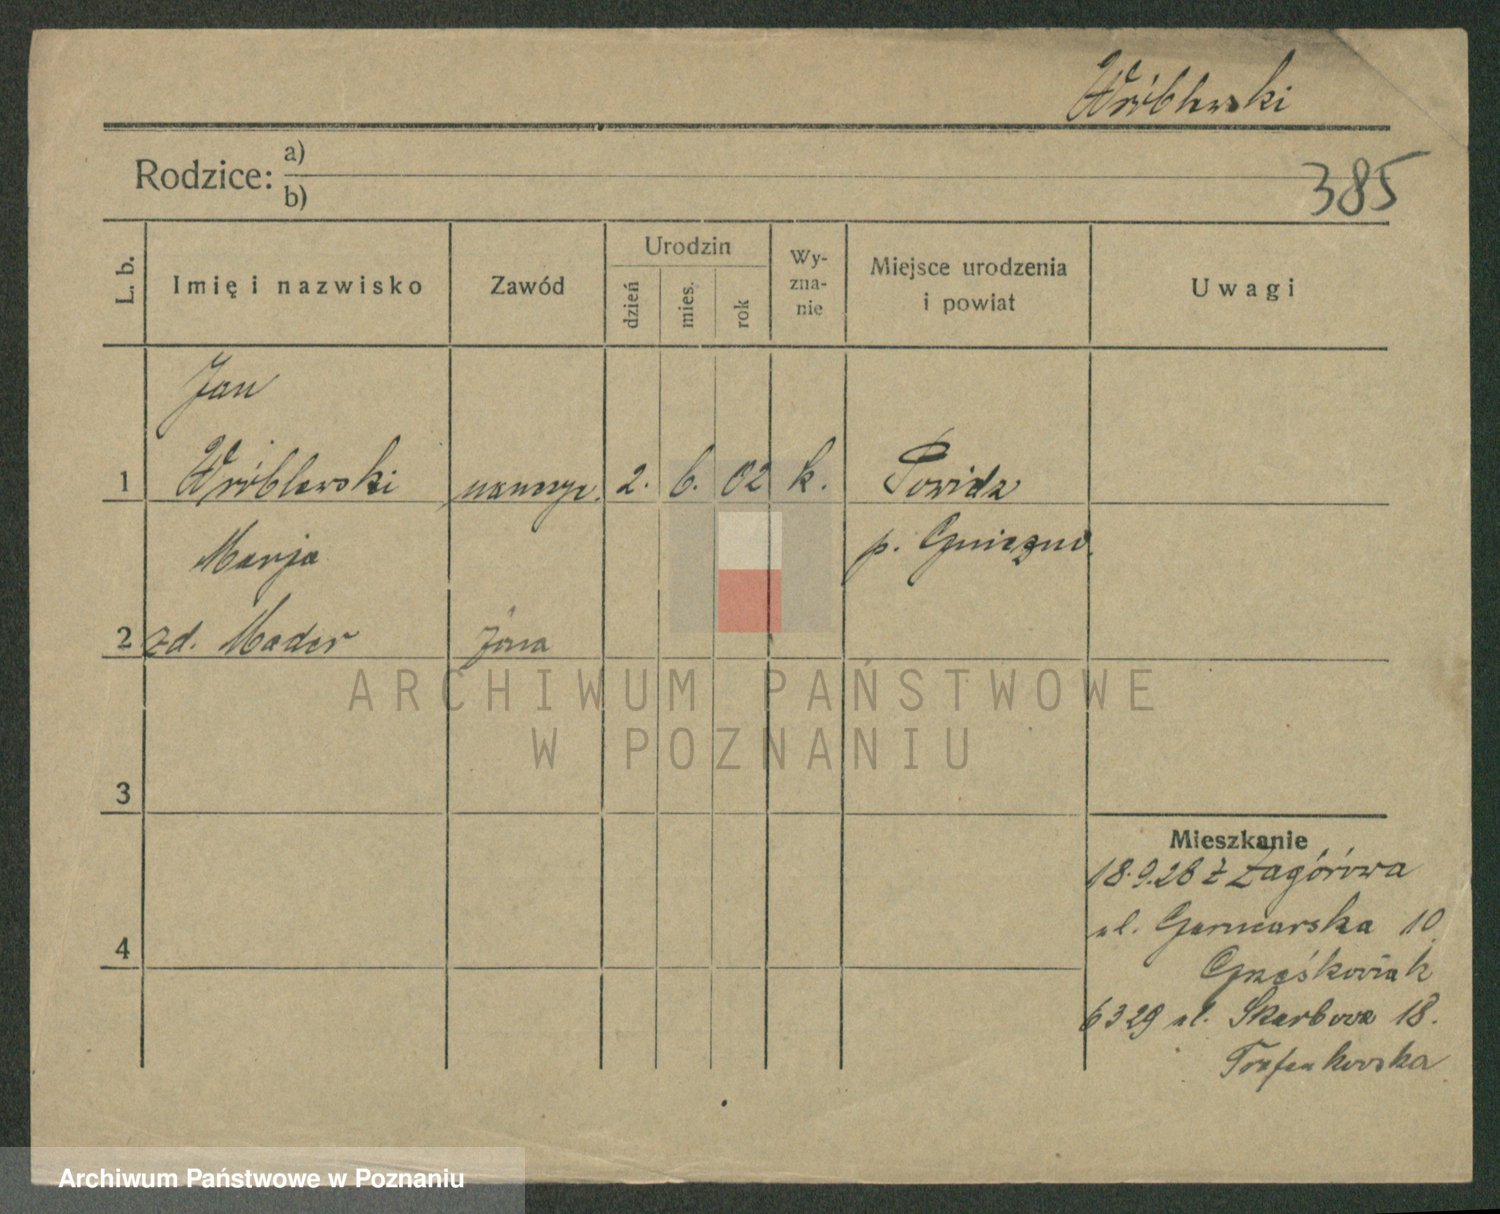 Wróblewski
Rodzice: a)
b)
385
L. b.
Imię i nazwisko
Zawód
Urodzin
dzień
mies.
rok
Wy-
zna-
nie
Miejsce urodzenia
i powiat
Uwagi
Jan
1 Wróblewski nauczyc. 2. 6. 02 k. Powidz
Marja p. Gniezno.
2 zd. Mader żona
3
4
Mieszkanie
18.9.28 z Zagórowa
ul. Garncarska 10
Grześkowiak
6 3 29 ul. Skarbowa 18.
ARCHIWUM PAŃSTWOWE
W POZNANIU
Archiwum Państwowe w Poznaniu